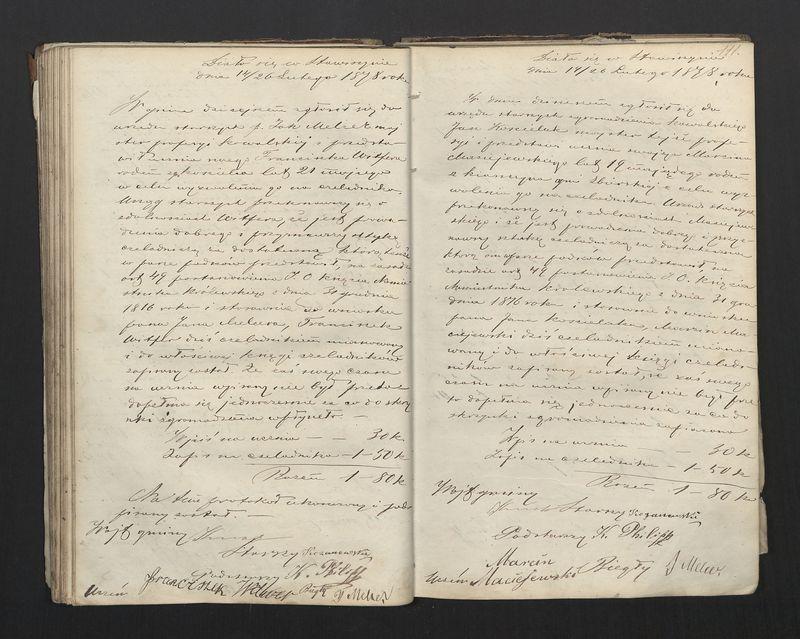 Działo się w Stawiszynie
dnia 14/26 Lutego 1878 roku
W dniu dzisiejszem zgłosił się do
urzędu starszych p. Jan Melcer maj
ster profesyi kowalskiej i przedsta-
wił ucznia swego Franciszka
rodem lat 21 mającego
w celu wyzwolenia go na czeladnika.
Urząd starszych przekonawszy się o
zdolnościach że jest prowa-
dzenia dobrego i przyjmawszy sztukę
czeladniczą za dostateczną którą
w parze podków przedstawił, na zasadzie
art 49 postanowienia J. O. Księcia Namie
stnika królewskiego z dnia 31 grudnia
1816 roku i stosownie do wniosku
pana Jana Melcera, Franciszek
dziś czeladnikiem mianowany
i do właściwej księgi czeladników
zapisany został. Że zaś swego czasu
na ucznia wpisany nie był przeto
dopełnia się jednocześnie za co do skrzy
nki zgromadzenia wpłynęło. —
Wpis na ucznia — — 30 k
Zapis na czeladnika — 1 – 50 k
Razem 1 – 80 k
Na tem protokół ukończony i pod-
pisany został. —
Wójt gminy
Starszy Rozanowski
Podstarszy K. Philipp
Uczeń Franciszek Biegły J Melcer
111.
Działo się w Stawiszynie
dnia 14/26 Lutego 1878 roku
W dniu dzisiejszem zgłosił się do
urzędu starszych zgromadzenia kowalskiego
Jan Kościelak majster tejże profe-
syi i przedstawił ucznia swojego Marcina
Maciejewskiego lat 19 mającego rodem
z gmi Zbierskiej w celu wyz
wolenia go na czeladnika. Urząd starszych
przekonawszy się o zdolnościach Maciejew
skiego i że jest prowadzenia dobrego i przyj
mawszy sztukę czeladniczą za dostateczną
którą w parze podków przedstawił, na
zasadzie art 49 postanowienia J. O. Księcia
Namiestnika królewskiego z dnia 31 gru
dnia 1816 roku i stosownie do wniosku
pana Jana Kościelaka, Marcin Ma
ciejewski dziś czeladnikiem miano
wany i do właściwej księgi czelad
ników zapisany został, że zaś swego
czasu na ucznia wpisany nie był prze
to dopełnia się jednocześnie za co do
skrzynki zgromadzenia
Wpis na ucznia — 30 k
Zapis na czeladnika — 1 – 50 k
Razem 1 – 80 k
Wójt gminy
Starszy Rozanowski
Podstarszy K. Philipp
Marcin
Uczeń Maciejewski Biegły J Melcer